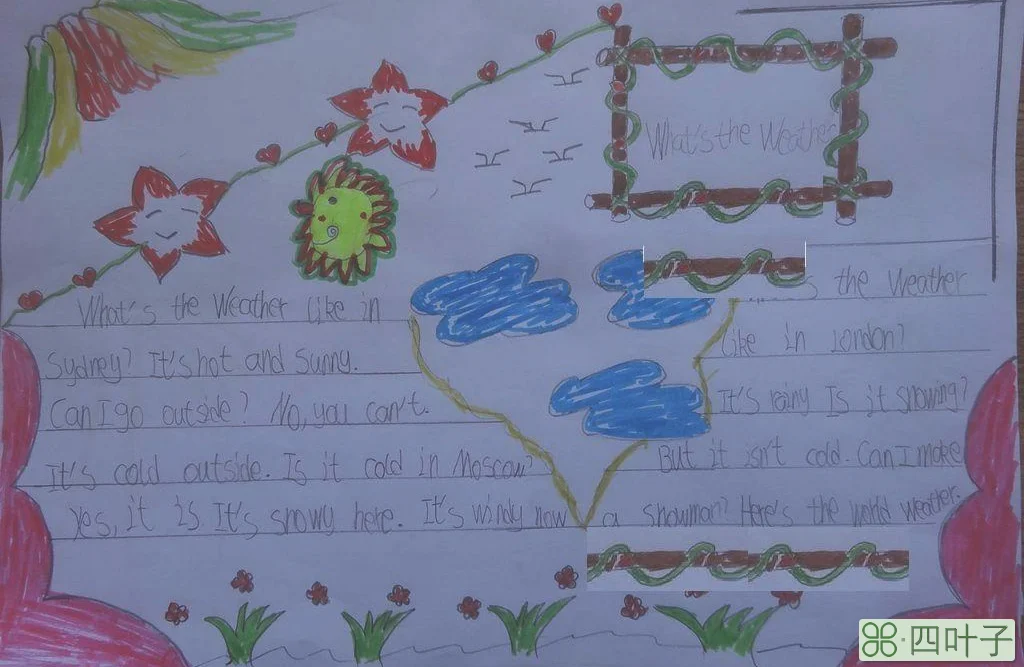 What's the Weather
What's the Weather Like in
Sydney? It's hot and Sunny.
Can I go outside? No, you can't.
It's cold outside. Is it cold in Moscow?
Yes, it is. It's snowy here. It's windy now
the Weather
Like in London?
It's rainy Is it snowing?
But it isn't cold. Can I make
a snowman? Here's the world weather.
四叶子